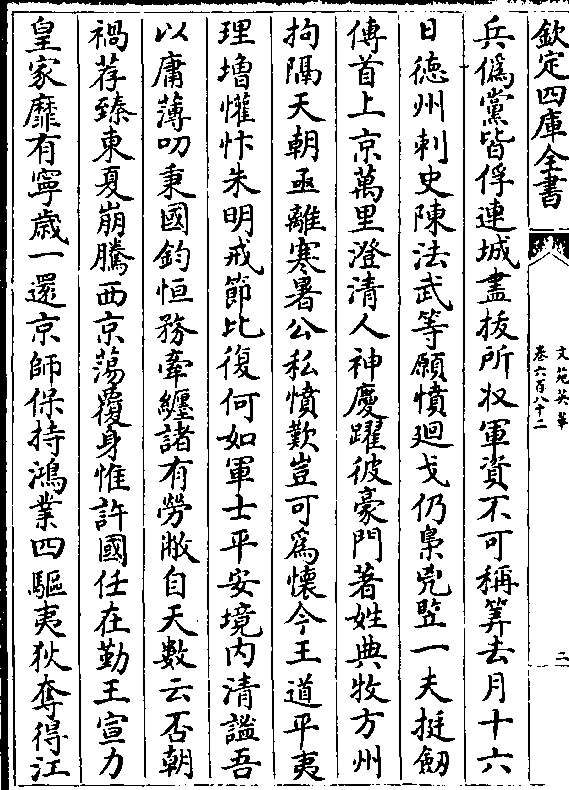 欽定四庫全書
文苑英華
卷六百八十二
二
兵偽黨皆俘連城盡拔所收軍資不可稱筭去月十六
日徳州刺史陳法武等願憤迴戈仍梟兇竪一夫挺劔
傳首上京萬里澄清人神慶躍彼豪門著姓典牧方州
拘隔天朝亟離寒暑公私憤歎豈可為懐今王道平夷
理増懽忭朱明戒節比復何如軍士平安境內清謐吾
以庸薄叨秉國鈞恒務牽纒諸有勞敝自天數云否朝
禍荐臻東夏崩騰西京蕩覆身惟許國任在勤王宣力
皇家靡有寧歳一還京師保持鴻業四驅夷狄奪得江